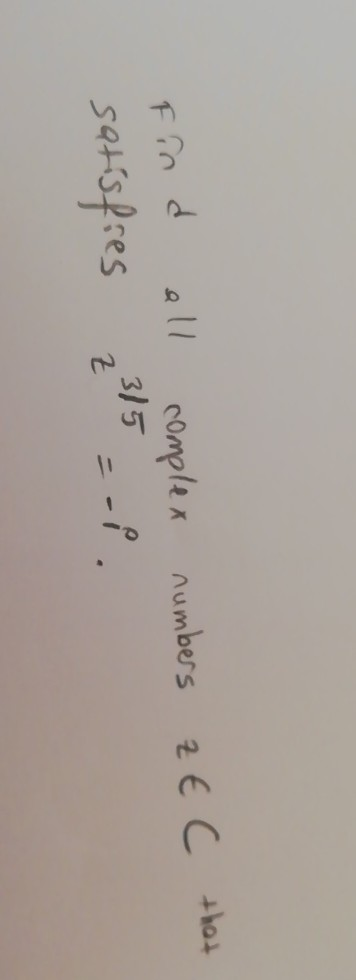 Find all complex numbers z ∈ C that
satisfies z^3/5 = -i.